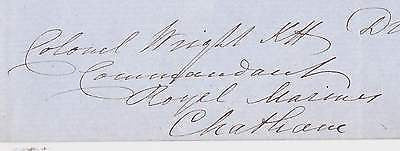 Colonel Wright KH
Commandant
Royal Marines
Chatham